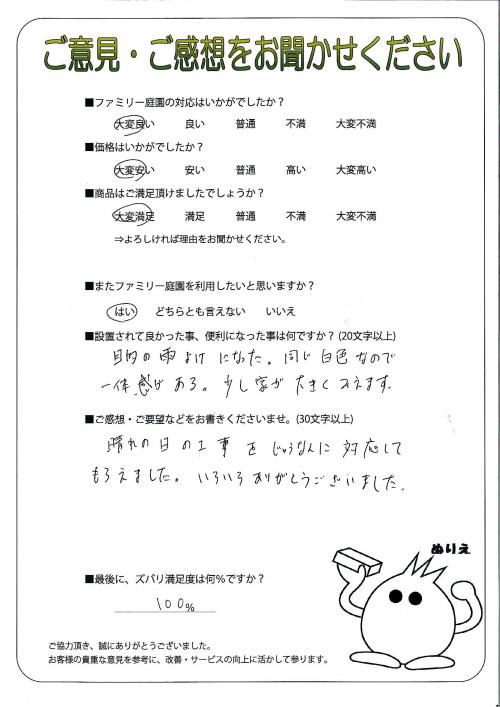 ご意見・ご感想をお聞かせください
■ファミリー庭園の対応はいかがでしたか？
大変良い 良い 普通 不満 大変不満
■価格はいかがでしたか？
大変安い 安い 普通 高い 大変高い
■商品はご満足頂けましたでしょうか？
大変満足 満足 普通 不満 大変不満
⇒よろしければ理由をお聞かせください。
■またファミリー庭園を利用したいと思いますか？
はい どちらとも言えない いいえ
■設置されて良かった事、便利になった事は何ですか？(20文字以上)
目的の雨よけになった。同じ白色なので
一体感がある。少し家が大きくみえます。
■ご感想・ご要望などをお書きくださいませ。(30文字以上)
晴れの日の工事をじゅうなんに対応して
もらえました。いろいろありがとうございました。
ぬりえ
■最後に、ズバリ満足度は何％ですか？
100%
ご協力頂き、誠にありがとうございました。
お客様の貴重な意見を参考に、改善・サービスの向上に活かして参ります。